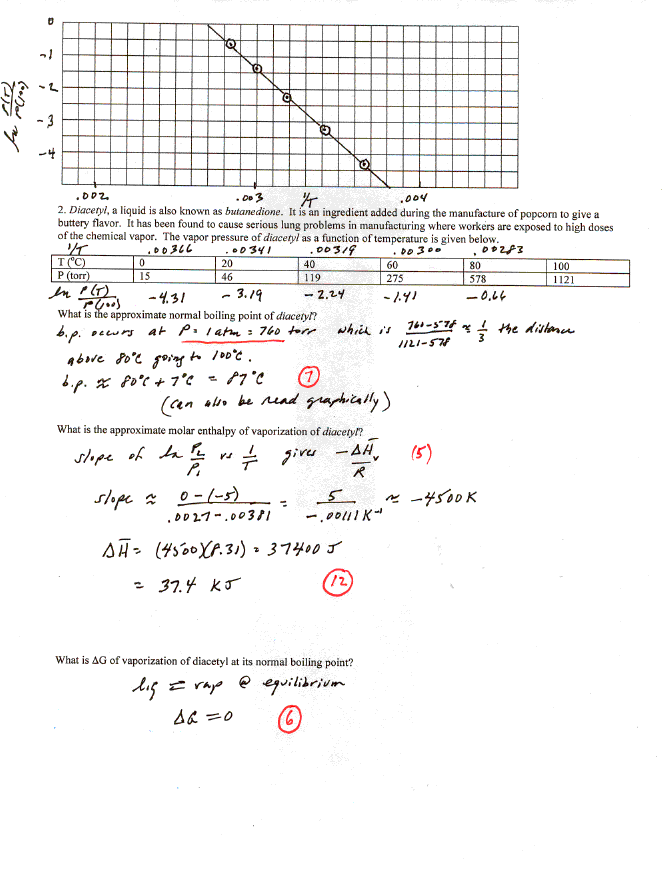 0
-1
-2
-3
-4
ln P(T)/P(100)
.002 .003 1/T .004
2. Diacetyl, a liquid is also known as butanedione. It is an ingredient added during the manufacture of popcorn to give a
buttery flavor. It has been found to cause serious lung problems in manufacturing where workers are exposed to high doses
of the chemical vapor. The vapor pressure of diacetyl as a function of temperature is given below.
1/T .00366 .00341 .00319 .00300 .00283
T (°C) 0 20 40 60 80 100
P (torr) 15 46 119 275 578 1121
ln P(T)/P(100) -4.31 -3.19 -2.24 -1.41 -0.66
What is the approximate normal boiling point of diacetyl?
b.p. occurs at P = 1 atm = 760 torr which is 760-578/1121-578 ≈ 1/3 the distance
above 80°C going to 100°C.
b.p. ≈ 80°C + 7°C = 87°C (7)
(can also be read graphically)
What is the approximate molar enthalpy of vaporization of diacetyl?
slope of ln P₂/P₁ vs 1/T gives -ΔH̅ᵥ/R (5)
slope ≈ 0-(-5)/.0027-.00381 = 5/-.00111 K⁻¹ ≈ -4500 K
ΔH̅ = (4500)(8.31) = 37400 J
= 37.4 KJ (12)
What is ΔG of vaporization of diacetyl at its normal boiling point?
liq ⇌ vap @ equilibrium
ΔG = 0 (6)